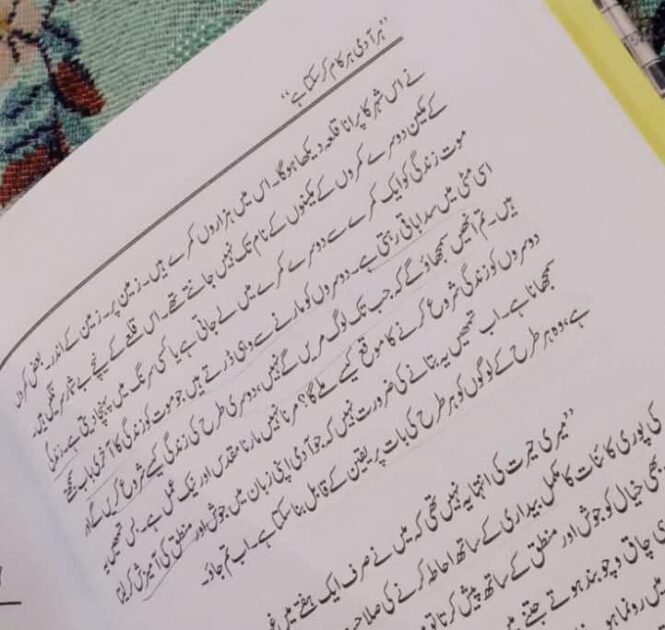 "ہر آدمی ہر کام کر سکتا ہے"
نے اس شہر کا پرانا قلعہ دیکھا ہوگا۔ اس میں ہزاروں کمرے ہیں۔ زمین پر۔ زمین کے اندر۔ بعض کمروں
کے مکین دوسرے کمروں کے مکینوں کے نام تک نہیں جانتے تھے۔ اس قلعے کے نیچے بے شمار سرنگیں ہیں۔
موت زندگی کو ایک کمرے سے دوسرے کمرے میں لے جاتی ہے یا کسی سرنگ میں پہنچا دیتی ہے۔ زندگی
اسی مٹی میں سدا باقی رہتی ہے۔ دوسروں کو مارنے سے وہی ڈرتے ہیں جو موت کو زندگی کا آخری باب سمجھتے
ہیں۔ تم انھیں سمجھاؤ گے کہ جب تک لوگ مریں گے نہیں، دوسری طرح کی زندگی کیسے شروع کریں گے اور
دوسروں کو زندگی شروع کرنے کا موقع کیسے ملے گا؟ مرنا نہیں مارنا مقدس اور نیک عمل ہے۔ بس تمھیں یہ
سمجھانا ہے۔ اب تمھیں یہ بتانے کی ضرورت نہیں کہ جو آدمی اپنی زبان میں جوش اور منطق کی آمیزش کر لیتا
ہے، وہ ہر طرح کے لوگوں کو ہر طرح کی بات پر یقین کے قابل بنا سکتا ہے۔ اب تم جاؤ۔
"میری حیرت کی انتہا یہ نہیں تھی کہ میں نے صرف ایک ہفتے میں
کی پوری کائنات کا مکمل بیداری کے ساتھ احاطہ کرنے کی
بھی خیال کو جوش اور منطق کے ساتھ پیش کرتا
چاق و چوبند ہوتے جتنے
میں رونما